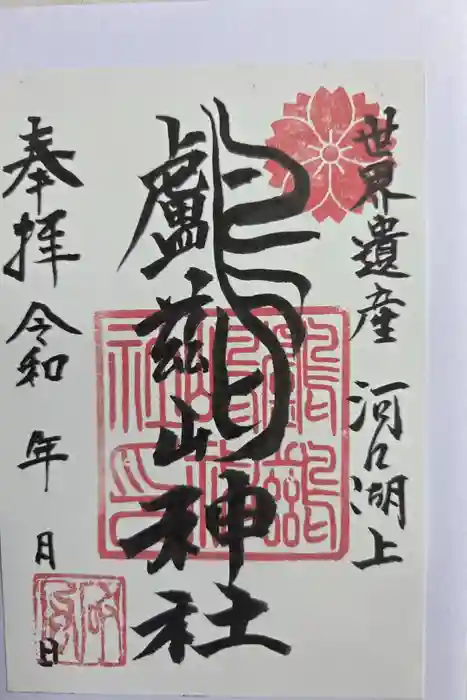 世界遺産 河口湖上
鸕鷀嶋神社
奉拝 令和 年 月 日
鸕鷀
嶋神
社印